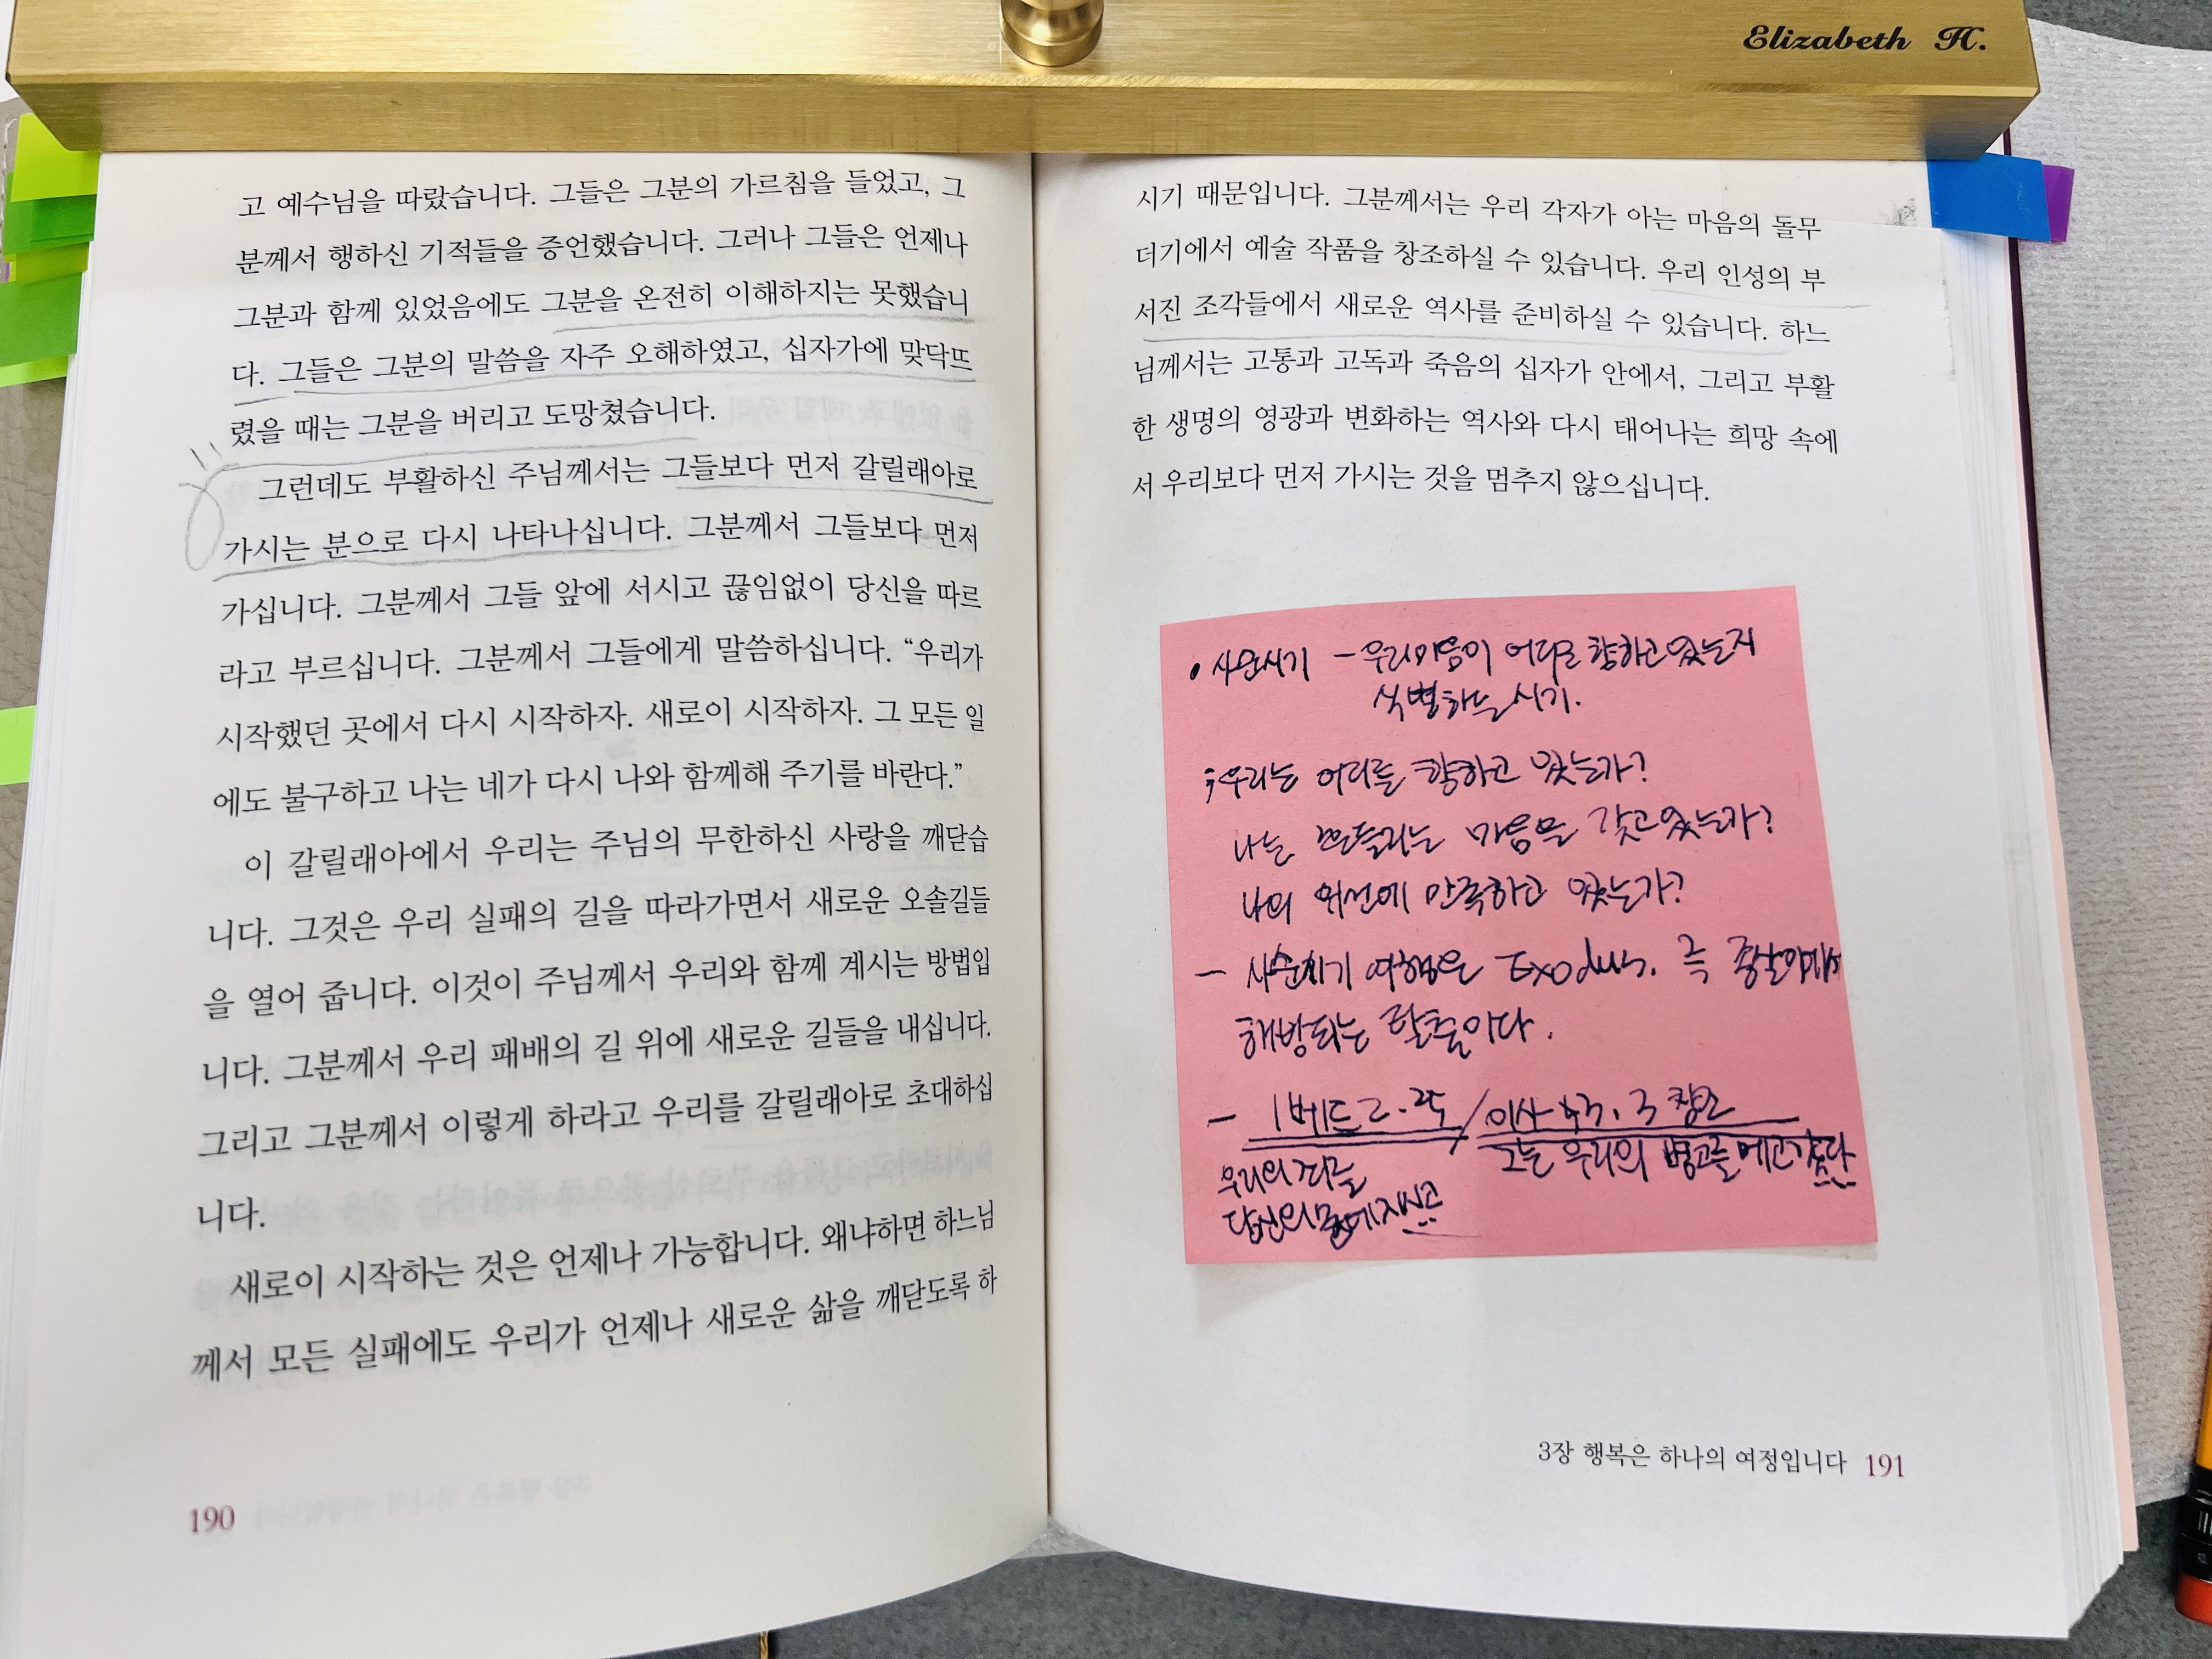 Elizabeth H.
고 예수님을 따랐습니다. 그들은 그분의 가르침을 들었고, 그
분께서 행하신 기적들을 증언했습니다. 그러나 그들은 언제나
그분과 함께 있었음에도 그분을 온전히 이해하지는 못했습니
다. 그들은 그분의 말씀을 자주 오해하였고, 십자가에 맞닥뜨
렸을 때는 그분을 버리고 도망쳤습니다.
그런데도 부활하신 주님께서는 그들보다 먼저 갈릴래아로
가시는 분으로 다시 나타나십니다. 그분께서 그들보다 먼저
가십니다. 그분께서 그들 앞에 서시고 끊임없이 당신을 따르
라고 부르십니다. 그분께서 그들에게 말씀하십니다. “우리가
시작했던 곳에서 다시 시작하자. 새로이 시작하자. 그 모든 일
에도 불구하고 나는 네가 다시 나와 함께해 주기를 바란다.”
이 갈릴래아에서 우리는 주님의 무한하신 사랑을 깨닫습
니다. 그것은 우리 실패의 길을 따라가면서 새로운 오솔길들
을 열어 줍니다. 이것이 주님께서 우리와 함께 계시는 방법입
니다. 그분께서 우리 패배의 길 위에 새로운 길들을 내십니다.
그리고 그분께서 이렇게 하라고 우리를 갈릴래아로 초대하십
니다.
새로이 시작하는 것은 언제나 가능합니다. 왜냐하면 하느님
께서 모든 실패에도 우리가 언제나 새로운 삶을 깨닫도록 하
190
시기 때문입니다. 그분께서는 우리 각자가 아는 마음의 돌무
더기에서 예술 작품을 창조하실 수 있습니다. 우리 인성의 부
서진 조각들에서 새로운 역사를 준비하실 수 있습니다. 하느
님께서는 고통과 고독과 죽음의 십자가 안에서, 그리고 부활
한 생명의 영광과 변화하는 역사와 다시 태어나는 희망 속에
서 우리보다 먼저 가시는 것을 멈추지 않으십니다.
• 사순시기 - 우리마음이 어디로 향하고 있는지
식별하는 시기.
; 우리는 어디를 향하고 있는가?
나는 흔들리는 마음을 갖고 있는가?
나의 위선에 만족하고 있는가?
- 사순시기 여행은 Exodus. 즉 종살이에서
해방되는 탈출이다.
- 1베드 2.24 / 이사 53. 3 참조
우리의 죄를
당신의 몸에 지시고
그는 우리의 병고를 메고 갔다
3장 행복은 하나의 여정입니다 191